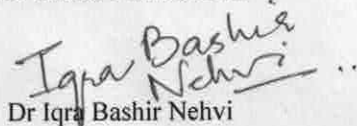 Iqra Bashir
Nehvi
Dr Iqra Bashir Nehvi